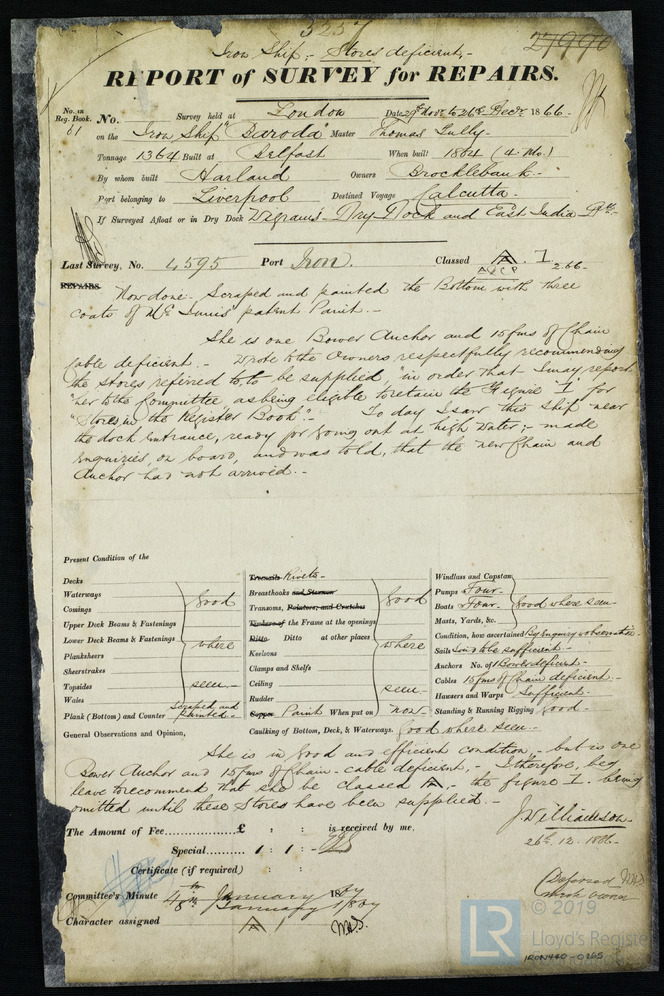 3257
21990
Iron Ship; - Stores deficient, -
REPORT of SURVEY for REPAIRS.
No. in Reg. Book. 61
No. Survey held at London Date 29th Novr to 26th Decr 1866.
on the Iron Ship "Baroda" Master Thomas Tully
Tonnage 1364 Built at Belfast When built 1864 (4 Mo.)
By whom built Harland Owners Brocklebank -
Port belonging to Liverpool Destined Voyage Calcutta -
If Surveyed Afloat or in Dry Dock Wigrams - Dry Dock and East India
Last Survey, No. 4595 Port Iron. Classed A. 1 2.66 -
A & C P
REPAIRS
Now done. Scraped and painted the Bottom with three
coats of patent Paint. -
She is one Bower Anchor and 15 fms of Chain
Cable deficient. - Wrote to the Owners respectfully recommending
the stores referred to, to be supplied, "in order that I may report
"her to the Committee as being eligible to retain the Figure "1" for
"Stores, in the Register Book": - To day I saw this Ship near
the dock entrance, ready for going out at high Water; - made
enquiries, on board, and was told, that the new Chain and
Anchor had not arrived. -
Present Condition of the
Decks
Waterways
Comings
Upper Deck Beams & Fastenings
Lower Deck Beams & Fastenings
Planksheers
Sheerstrakes
Topsides
Wales
good
where
seen -
Plank (Bottom) and Counter Scraped and painted -
General Observations and Opinion,
Treenails Rivets -
Breasthooks and Sternson
Transoms, Pointers, and Crutches
Timbers of the Frame at the openings
Ditto Ditto at other places
Keelsons
Clamps and Shelfs
Ceiling
Rudder
good
where
seen -
Copper Paint When put on now -
Caulking of Bottom, Deck, & Waterways. good where seen -
Windlass and Capstan
Pumps Four -
Boats Four -
Masts, Yards, &c.
good where seen -
Condition, how ascertained By Enquiry & observation -
Sails Said to be sufficient -
Anchors No. of 1 Bower deficient -
Cables 15 fms of Chain deficient -
Hawsers and Warps Sufficient -
Standing & Running Rigging good -
She is in good and efficient condition, - but is one
Bower Anchor and 15 fms of Chain - cable deficient, - I therefore, beg
leave to recommend that she be classed A, - the figure 1. being
omitted until these Stores have been supplied. -
J. Williamson -
26th. 12. 1866. -
The Amount of Fee £ : : is received by me.
Special 1 : 1 : -
Certificate (if required) : :
Committee's Minute 4th January 1867
8th January 1867
Character assigned A 1
Deferred
© 2019
LR
Lloyd's Registe
IRON440-0265